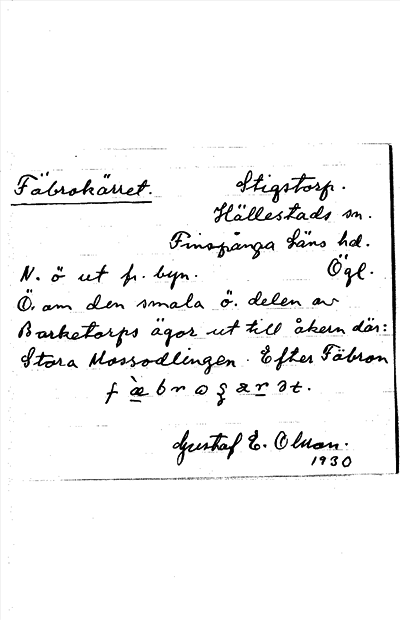 Fäbrokärret.
Stigstorp.
Hällestads sn.
Finspånga läns hd.
Ögl.
N. ö ut fr. byn.
Ö. om den smala ö. delen av
Barketorps ägor ut till åkern där:
Stora Mossodlingen. Efter Fäbron
Gustaf E. Olsson.
1930